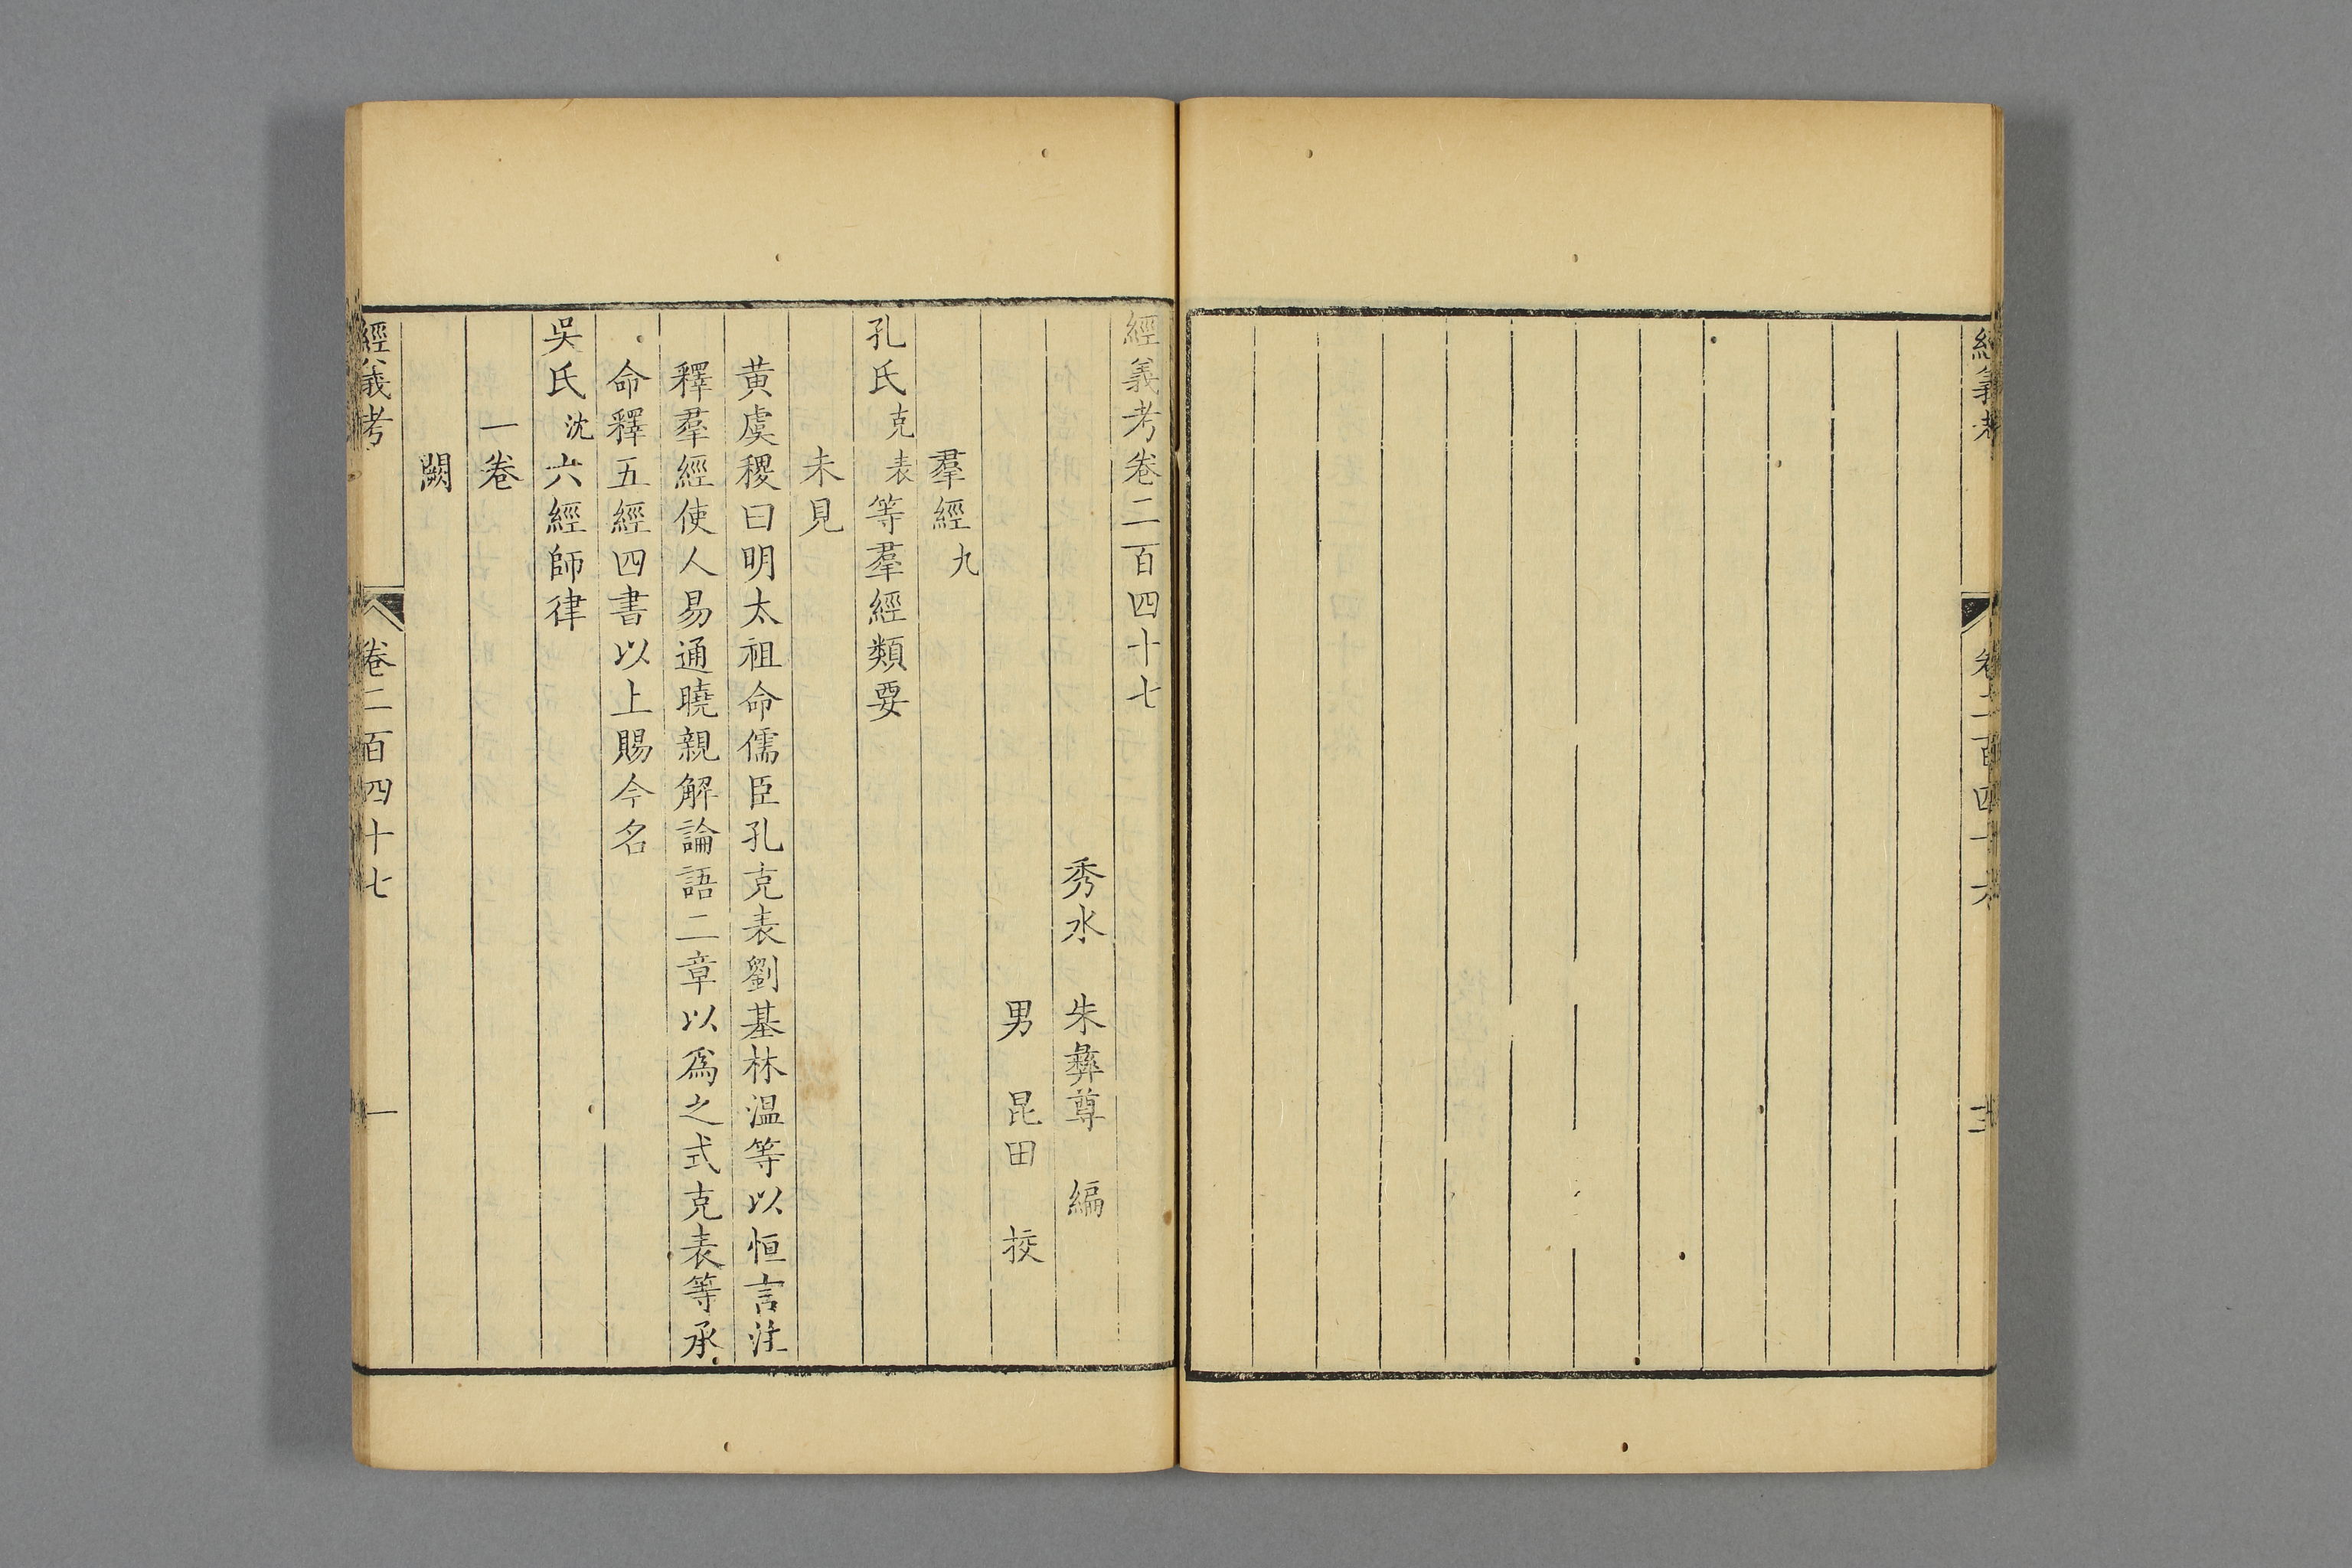 經義考
卷二百四十六
經義考卷二百四十七
秀水 朱彝尊 編
男 昆田 挍
羣經九
孔氏克表等羣經類要
未見
黄虞稷曰明太祖命儒臣孔克表劉基林温等以恒言注
釋羣經使人易通曉親解論語二章以爲之式克表等承
命釋五經四書以上賜今名
吳氏沈六經師律
一卷
闕
經義考
卷二百四十七
一